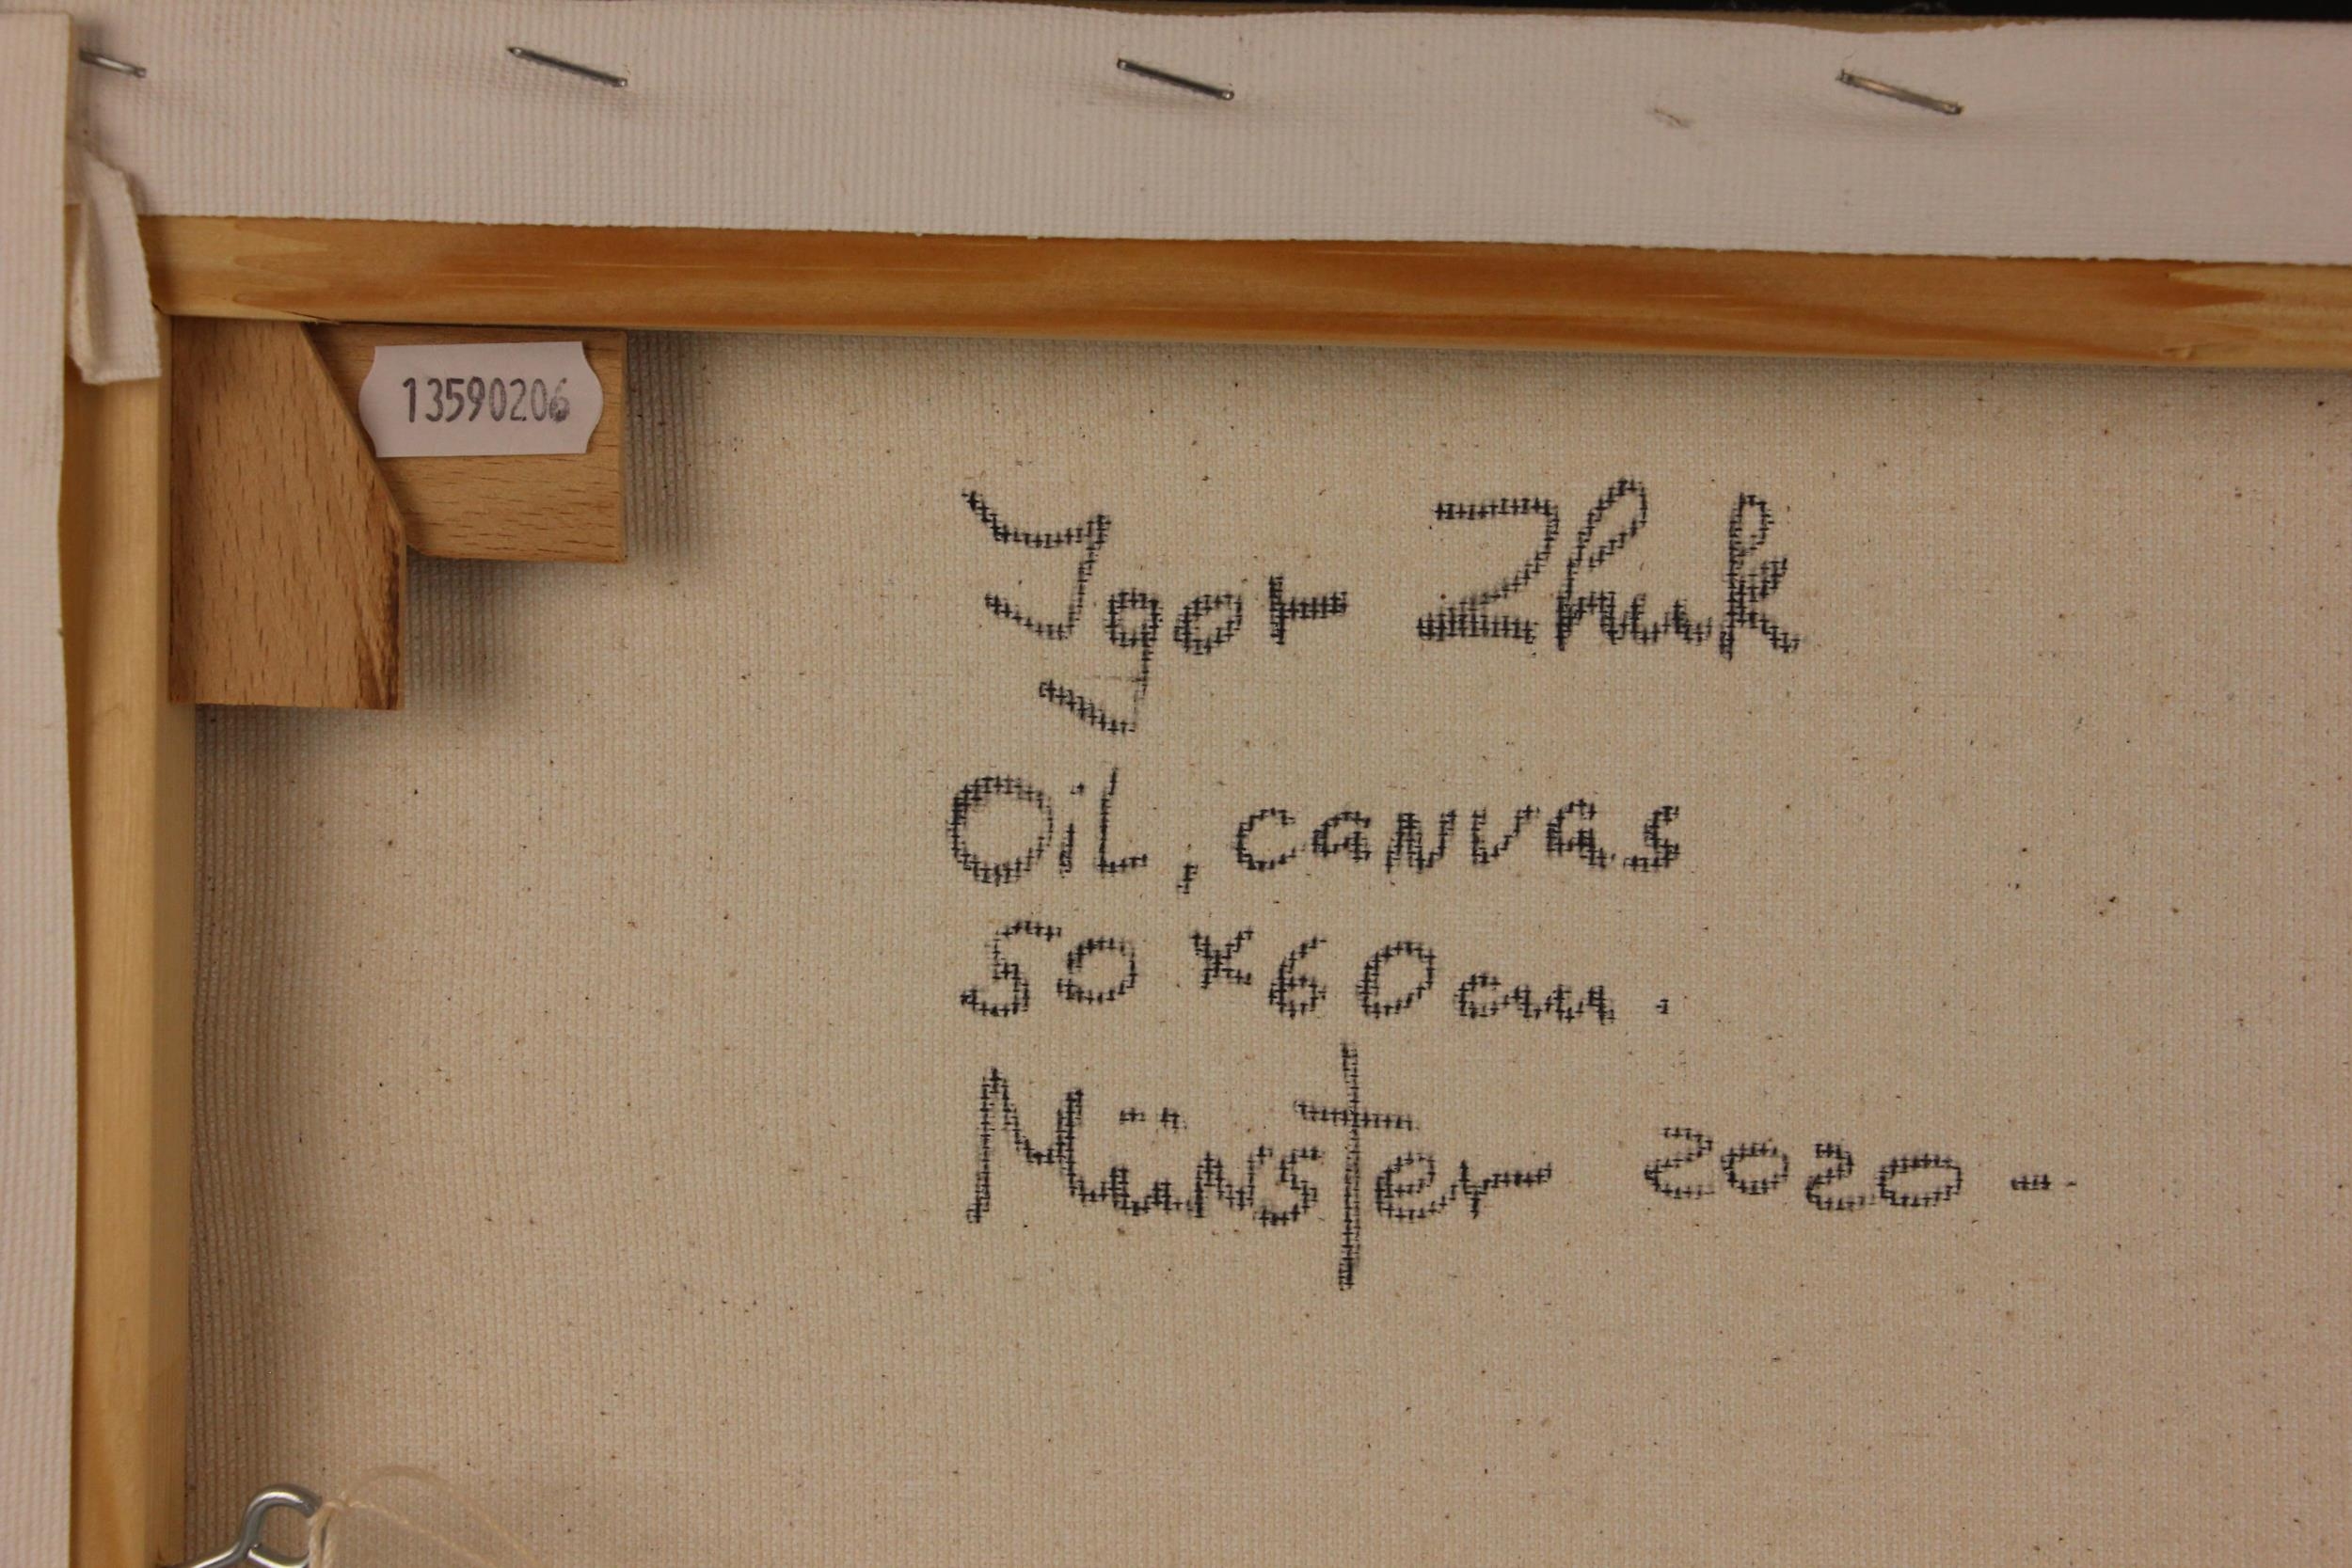 13590206
Igor Zhuk
Oil, canvas
50 x 60 cm.
Münster 2020 -